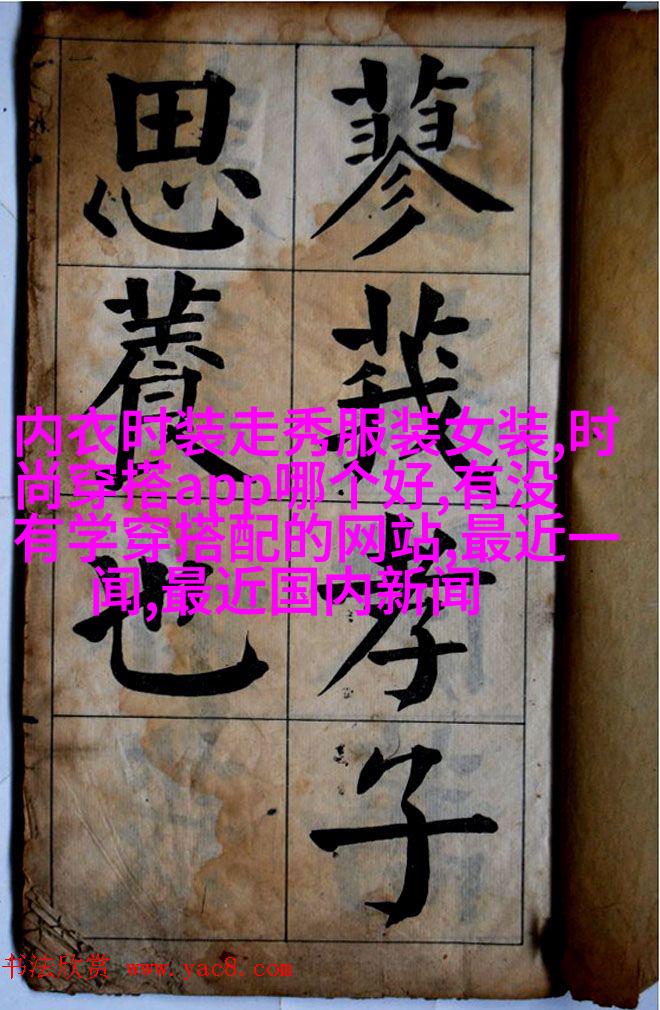 蓼莪孝子
思養也
内衣时装走秀服装女装,时
尚穿搭app哪个好,有没
有学穿搭配的网站,最近一
闻,最近国内新闻
书法欣赏 www.yac8.com